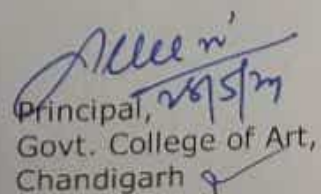 Principal,
Govt. College of Art,
Chandigarh